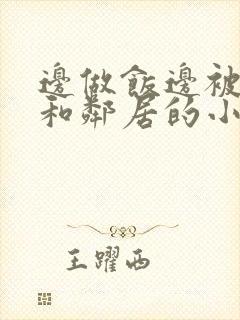 邊做飯邊被
和鄰居的小
王躍西